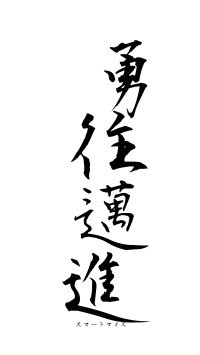 勇往邁進
スマートマイズ